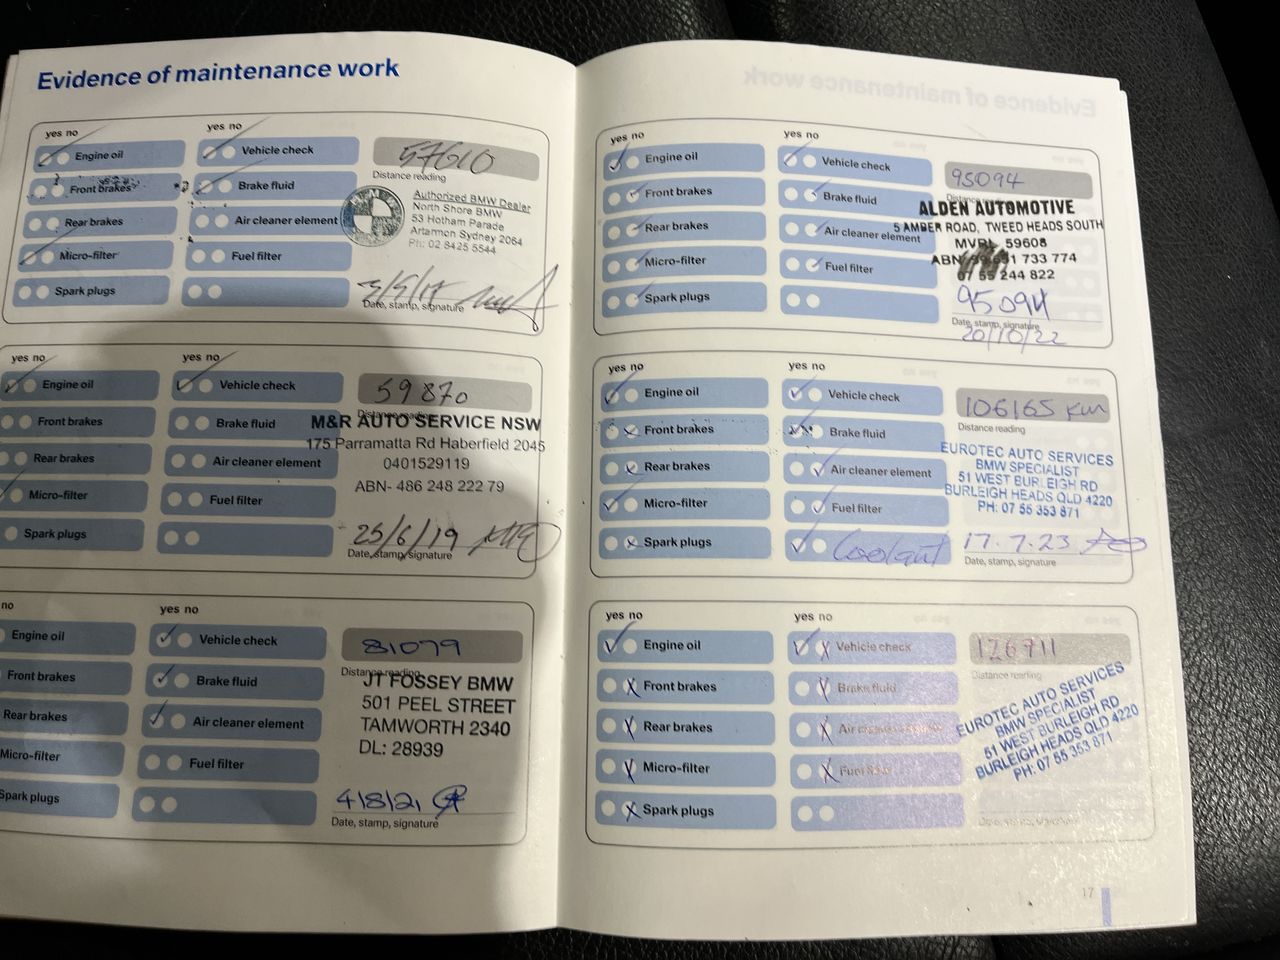 Evidence of maintenance work
yes no
yes no
Engine oil
Vehicle check
57610
Distance reading
Front brakes
Brake fluid
Authorized BMW Dealer
North Shore BMW
53 Hotham Parade
Artarmon Sydney 2064
Ph: 02 8425 5544
Rear brakes
Air cleaner element
Micro-filter
Fuel filter
Spark plugs
3/5/17
Date, stamp, signature
yes no
yes no
Engine oil
Vehicle check
59870
Distance reading
Front brakes
Brake fluid
M&R AUTO SERVICE NSW
175 Parramatta Rd Haberfield 2045
0401529119
ABN- 486 248 222 79
Rear brakes
Air cleaner element
Micro-filter
Fuel filter
Spark plugs
25/6/19
Date, stamp, signature
no
yes no
Engine oil
Vehicle check
81079
Distance reading
Front brakes
Brake fluid
JT FOSSEY BMW
501 PEEL STREET
TAMWORTH 2340
DL: 28939
Rear brakes
Air cleaner element
Micro-filter
Fuel filter
Spark plugs
4/8/21
Date, stamp, signature
yes no
yes no
Engine oil
Vehicle check
95094
Front brakes
Brake fluid
ALDEN AUTOMOTIVE
5 AMBER ROAD, TWEED HEADS SOUTH
MVRL 59608
ABN 733 774
07 55 244 822
Rear brakes
Air cleaner element
Micro-filter
Fuel filter
Spark plugs
95094
Date, stamp, signature
20/10/22
yes no
yes no
Engine oil
Vehicle check
106165 km
Distance reading
Front brakes
Brake fluid
EUROTEC AUTO SERVICES
BMW SPECIALIST
51 WEST BURLEIGH RD
BURLEIGH HEADS QLD 4220
PH: 07 55 353 871
Rear brakes
Air cleaner element
Micro-filter
Fuel filter
Spark plugs
Coolant
17.7.23
Date, stamp, signature
yes no
yes no
Engine oil
Vehicle check
126711
Distance reading
Front brakes
Brake fluid
EUROTEC AUTO SERVICES
BMW SPECIALIST
51 WEST BURLEIGH RD
BURLEIGH HEADS QLD 4220
PH: 07 55 353 871
Rear brakes
Air cleaner element
Micro-filter
Fuel filter
Spark plugs
Date, stamp, signature
17